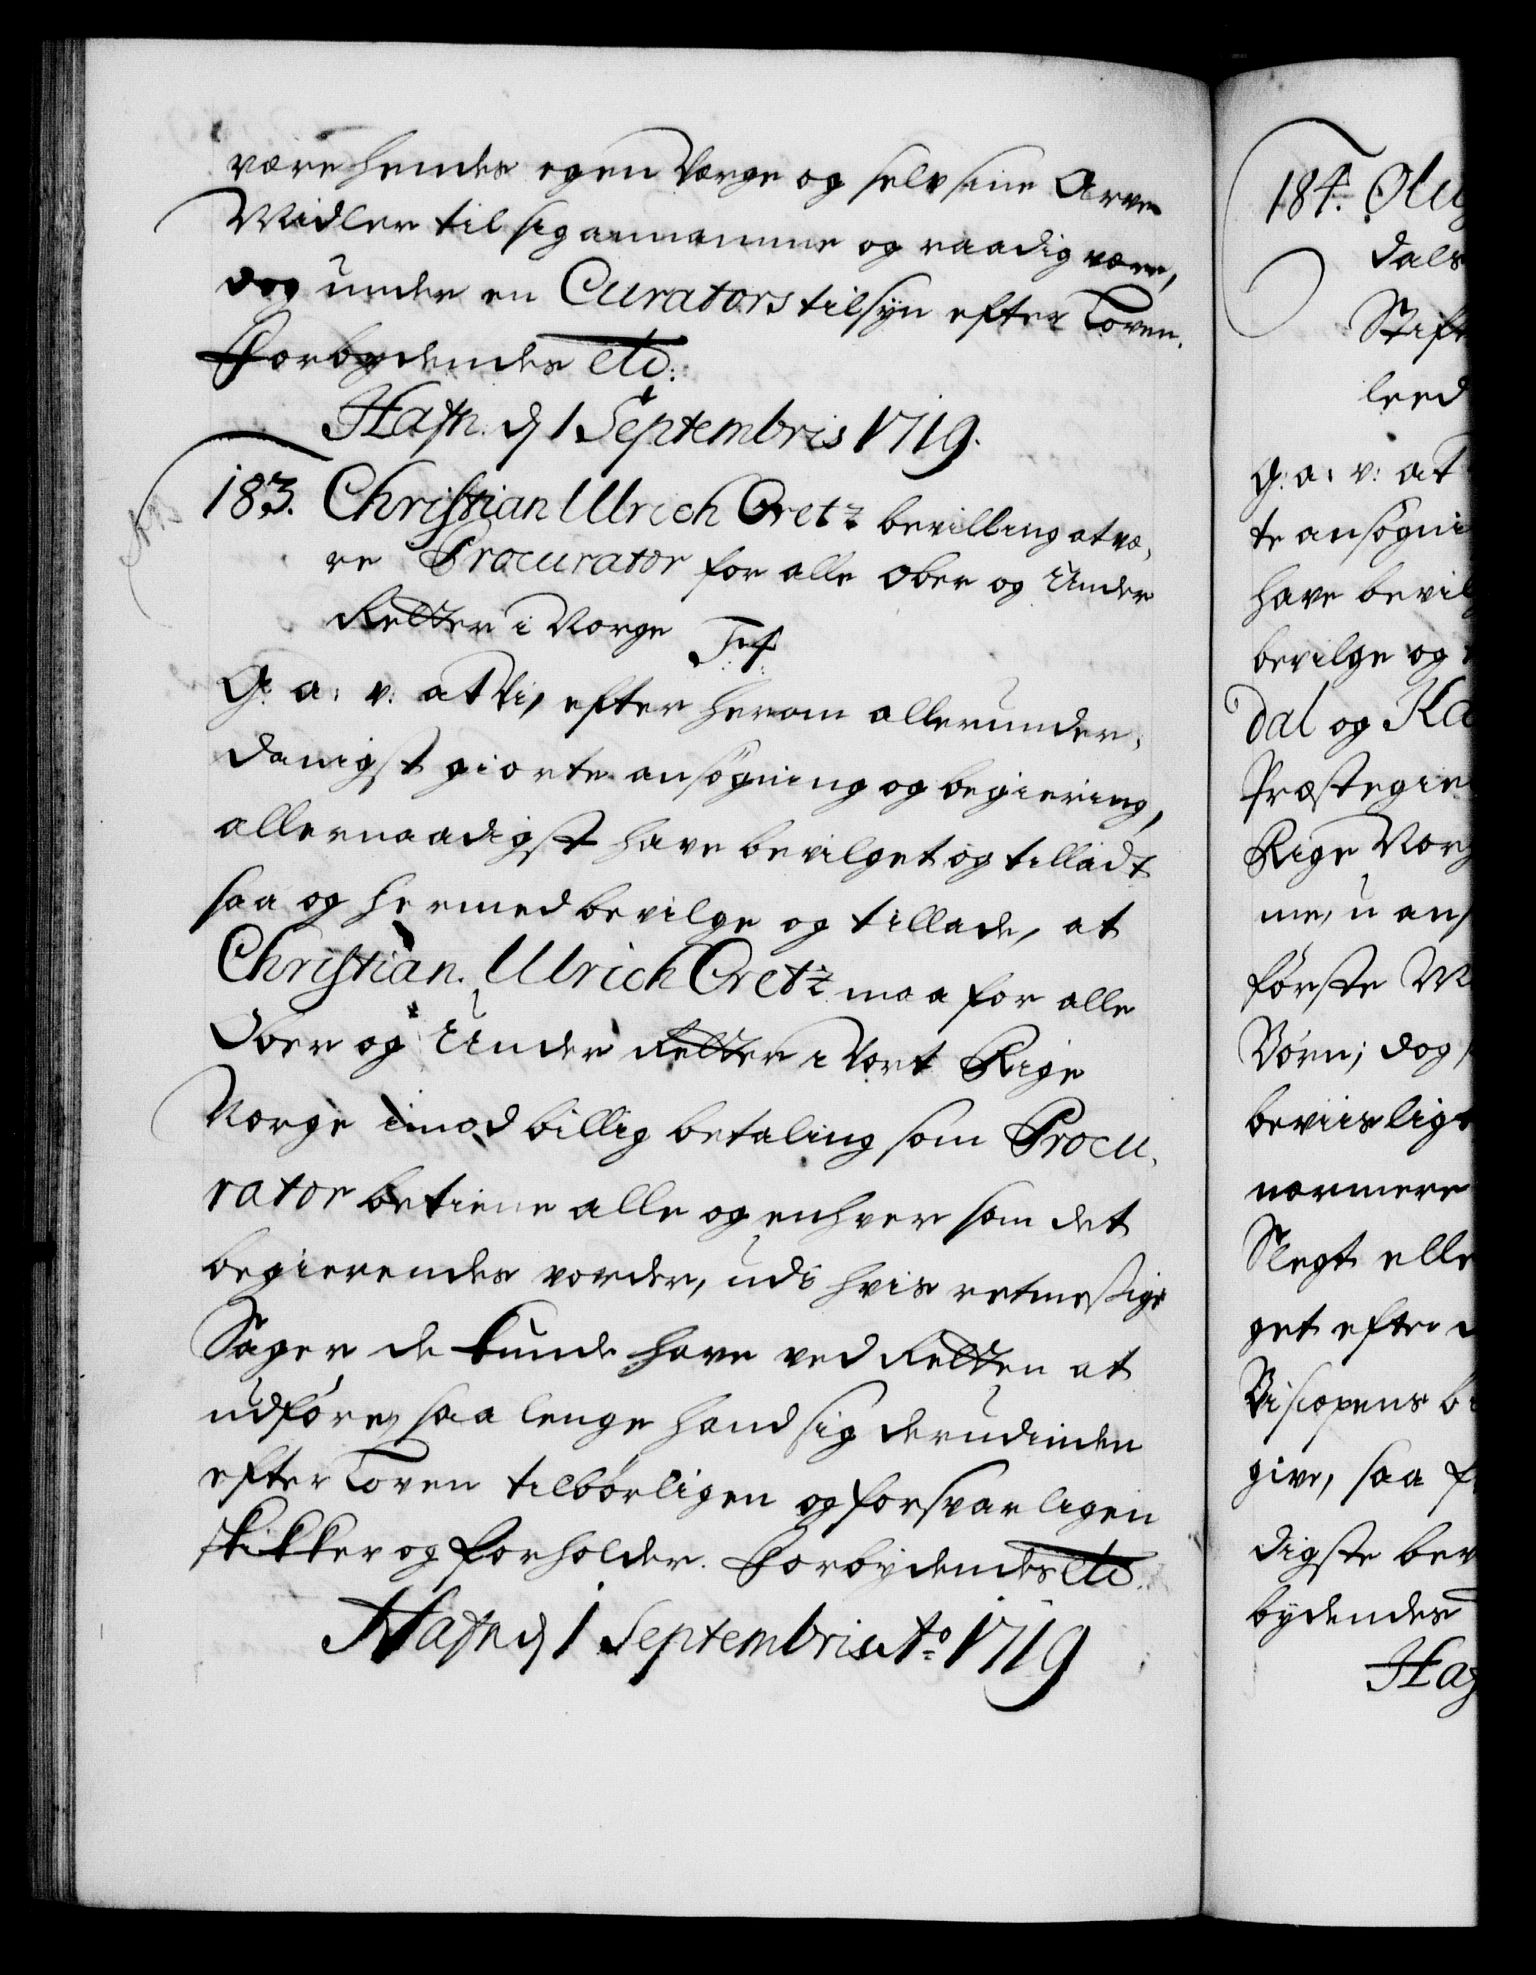 være hendes egen Værge og selv sine Arve
Midler til sig annamme og raadig være,
dog under en Curators tilsyn efter Loven.
Forbydendes etc:
Hafn. d 1 Septembris 1719.
183. Christian Ulrich Gretz bevilling at væ-
re Procurator for alle Ober og Under
Retter i Norge F:4.
G: a: v: at Vi, efter herom allerunder-
danigst giorte ansøgning og begiering,
allernaadigst have bevilget og tilladt
saa og hermed bevilge og tillade, at
Christian Ulrich Gretz maa for alle
Ober og Under Retter i Vort Rige
Norge imod billig betaling som Procu-
rator betiene alle og enhver som det
begierendes vorder, udi hvis retmessige
Sager de kunde have ved Retten at
udføre, saa lenge hand sig derudinden
efter Loven tilbørligen og forsvarligen
skikker og forholder. Forbydendes etc.
Hafn d 1 Septembris Ao 1719
184. Olu
dals
Stift
leed
G: a: v: at
te ansøgni
have bevil
bevilge og
dal og Ka
Præstegie
Rige Norg
me, u ans
første M
Børn; dog
beviislig
nermere
Slegt elle
get efter d
Biscopens b
give, saa f
digste bev
bydendes
Haf